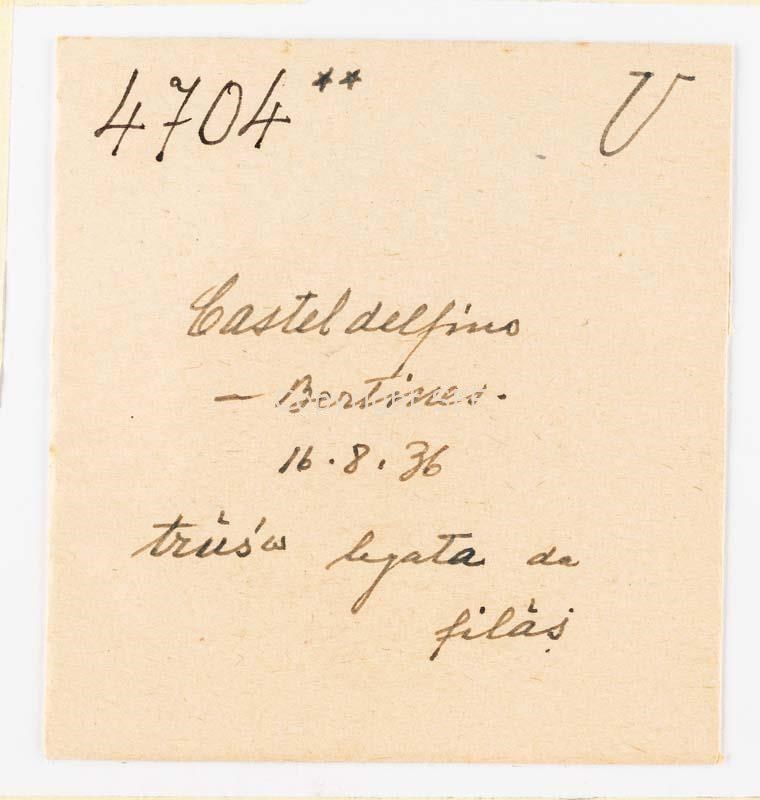 4704** V
Casteldelfino
- Bertines.
16.8.36
legata da